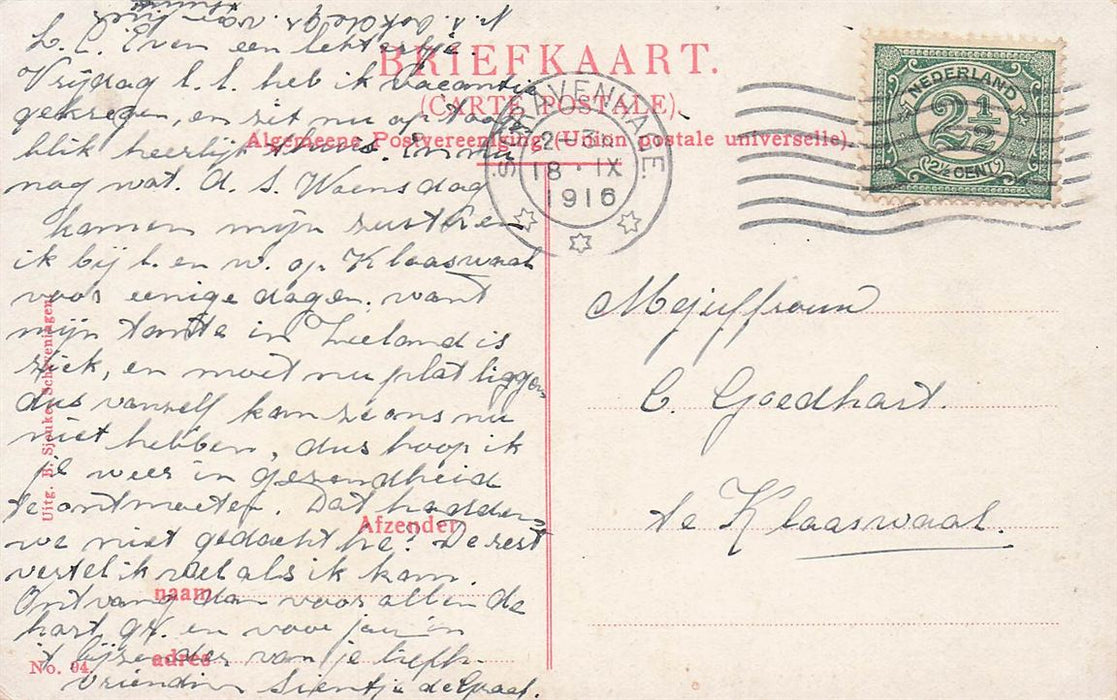 L. C. Even een lettertje.
Vrijdag l.l. heb ik vacantie
gekregen, en zit nu op 't
blik heerlijk thuis. En nu
nog wat. a. s. Woensdag
komen mijn zusther en
ik bij t. en w. op Klaaswaal
voor eenige dagen. want
mijn tante in Zeeland is
ziek, en moet nu plat liggen
dus vanzelf kan ze ons nu
niet hebben, dus hoop ik
je weer in gezondheid
te ontmoeten. Dat hadden
we niet gedacht hé? De rest
vertel ik wel als ik kom.
Ontvang dan voor allen de
hart. gr. en voor jou in
't bijzonder van je liefh.
vriendin Sientje de Graaf.
BRIEFKAART.
(CARTE POSTALE).
Algemeene Postvereeniging (Union postale universelle).
'S GRAVENHAGE.
18 · IX
1916
NEDERLAND
2½
(2½ CENT)
Mejuffrouw
C. Goedhart.
te Klaaswaal.
Afzender:
naam
adres
No. 94.
Uitg. B. Sjouke, Scheveningen